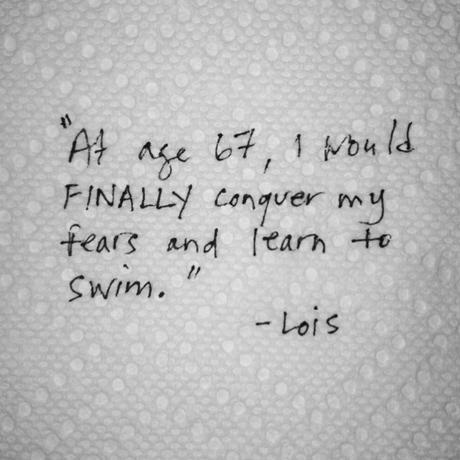 "At age 67, I would
FINALLY conquer my
fears and learn to
swim."
- Lois